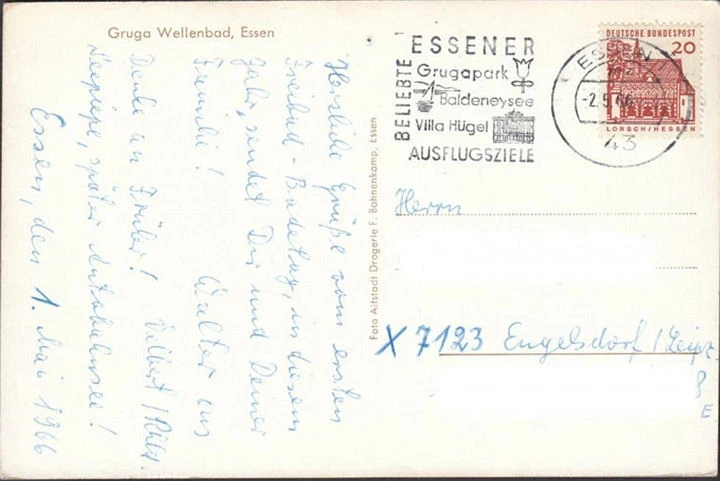 Gruga Wellenbad, Essen
Essen, den 1. Mai 1966
Herzliche Grüße vom ersten
Freibad-Badetag, in diesem
Jahr, sendet Dir und Deiner
Familie! Walter aus
Denke an früher!
später Autobahnsee!
Foto Altstadt Drogerie F. Bahnenkamp, Essen
BELIEBTE
ESSENER
Grugapark
Baldeneysee
Villa Hügel
AUSFLUGSZIELE
ESSEN 1
-2.5.66
43
DEUTSCHE BUNDESPOST
20
LORSCH/HESSEN
Herrn
X 7123 Engelsdorf/Leipz.
8
E